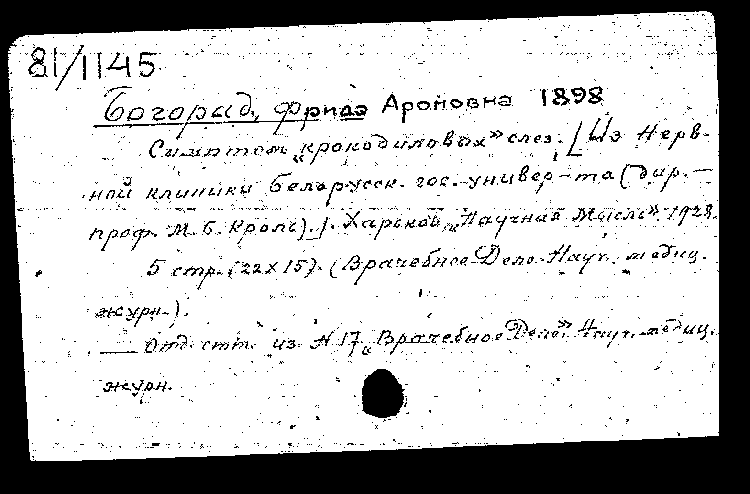 81/1145
Богорад, Фрида Ароновна 1898
Симптом „крокодиловых" слез. [Из Нерв-
ной клиники Белорусск. гос. универ-та (дир. —
проф. М. Б. Кроль).]. Харьков, „Научная Мысль" 1928.
5 стр. (22х15). (Врачебное Дело. Науч. медиц.
журн.).
— Отд. отт. из № 17 „Врачебное Дело". Науч. медиц.
журн.